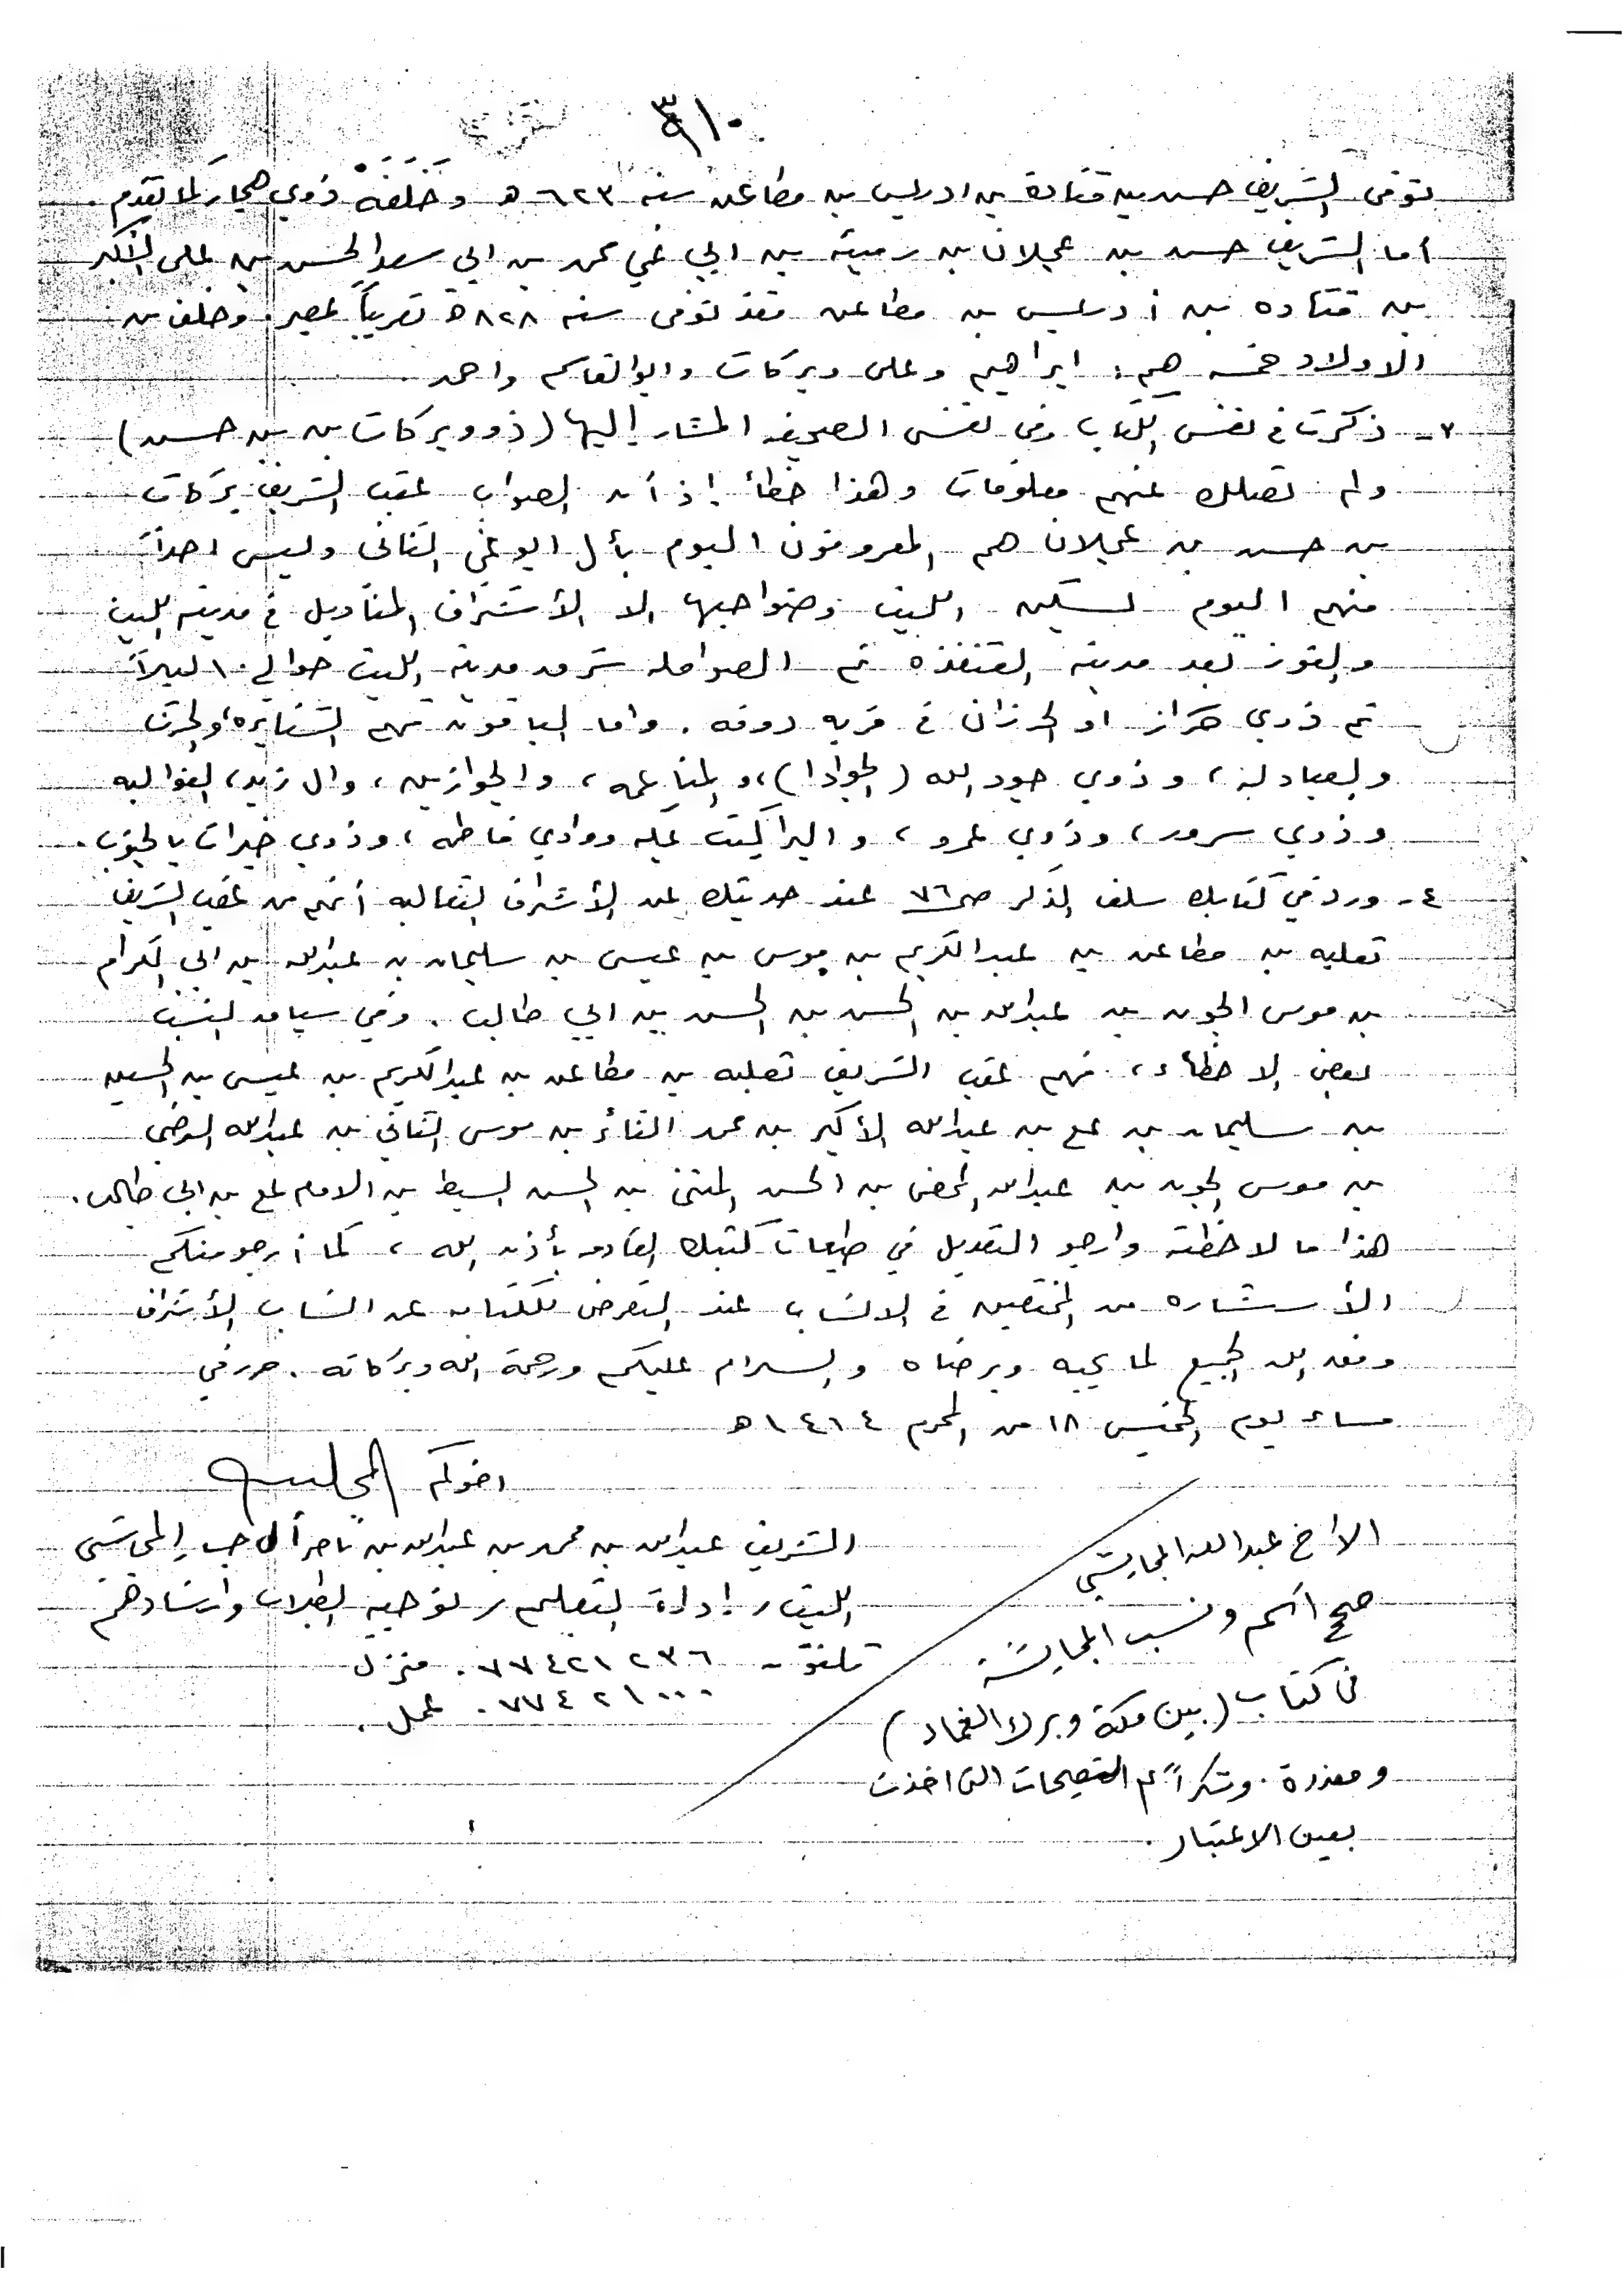 ٣١٠
توفى الشريف حسن بن قتادة بن ادريس بن مطاعن سنه ٦٢٣ هـ وخَلَفَهُ ذوي هجار كما تقدم .
أما الشريف حسن بن عجلان بن رميثه بن ابي نمي محمد بن ابي سعد الحسن بن على الأكبر
بن قتاده بن أدريس بن مطاعن فقد توفى سنه ٨٢٨ هـ تقريباً بمصر وخلف من
الاولاد خمسه هم : ابراهيم وعلى وبركات وابوالقاسم واحمد .
ذكرت في نفس الكتاب وفي نفس الصحيفه المشار إليها (ذوو بركات بن بن حسن)
ولم تصلك عنهم معلومات وهذا خطأ إذ أن الصواب عقب الشريف بركات
بن حسن بن عجلان هم المعروفون اليوم بأل ابو نمي الثاني وليس احداً
منهم اليوم يسكن الليث وضواحيها الا الأشراف المناديل في مدينه الليث
والقوز بعد مدينه القنفذه ثم الصوامله شرق مدينه الليث حوالي ١٠ كيلاً
ثم ذوي هزاز او الحرزان في قريه دوقه . واما الباقون فهم الشنابره والحرث
والعبادله ، وذوي جود الله (الجوادا) ، والمناعمه ، والجوازين ، وال زيد ، الغواليه
وذوي سرور ، وذوي عمرو ، والبراكيت بمكه ووادي فاطمه ، وذوي خيرات بالجنوب .
٤ - ورد في كتابك سلف الذكر ص ٧٦ عند حديثك عن الأشراف الثعالبه أنهم من عقب الشريف
ثعلبه بن مطاعن بن عبدالكريم بن موسى بن عيسى بن سليمان بن عبدالله بن ابي الكرام
بن موسى الجون بن عبدالله بن الحسن بن الحسن بن ابي طالب . وفي سياق النسب
بعض الاخطاء ، فهم عقب الشريف ثعلبه بن مطاعن بن عبدالكريم بن عيسى بن الحسين
بن سليمان بن علي بن عبدالله الأكبر بن محمد الثائر بن موسى الثاني بن عبدالله الرضي
بن موسى الجون بن عبدالله المحض بن الحسن المثنى بن الحسن السبط بن الامام علي بن ابي طالب .
هذا ما لاحظته وارجو التعديل في طبعات كتبك القادمه بأذن الله ، كما أرجو منكم
الأستشاره من المختصين في الانساب عند التعرض للكتابه عن انساب الأشراف
وفق الله الجميع لما يحبه ويرضاه والسلام عليكم ورحمة الله وبركاته . حرر في
مساء يوم الخميس ١٨ من المحرم ١٤١٤ هـ
اخوكم
الشريف عبدالله بن محمد بن عبدالله بن ناصر أل حسن المجايشي
الليث / إدارة التعليم / توجيه الطلاب وارشادهم
تلفون ٠٧٧٤٢١٢٣٦ منزل
٠٧٧٤٢١٠٠٠ عمل .
الأخ عبدالله المجايشي
صحح اسم ونسب المجايشة
في كتاب (بين مكة وبرك الغماد)
ومعذرة . وشكراً التصحيحات التي اخذت
بعين الاعتبار .